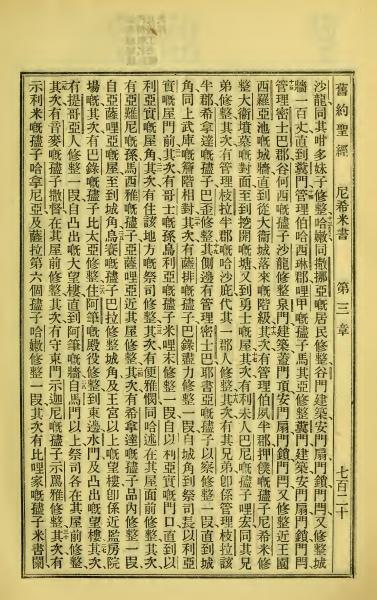 舊約聖經 尼希米書 第三章 七百二十
沙龍同其咁多妹子修整哈嫩同撒挪亞嘅居民修整谷門建築安門扇門鎖門閂又修整城
牆一百丈直到糞門管理伯哈琳郡利甲嘅𡥧子馬其亞修整糞門建築安門扇門鎖門閂
管理密士巴郡谷何西嘅𡥧子沙龍修整泉門建築蓋門頂安門扇門鎖門閂又修整近王園
西羅亞池嘅城牆直到從大衞城落來嘅階級其次有管理伯夙半郡押僕嘅𡥧子尼希米修
整大衞墳墓嘅對面至到挖開嘅塘又到勇士嘅屋其次有利未人巴尼嘅𡥧子利宏同其兄
弟修整其次有管理枝拉半郡嘅哈沙庇代其一郡人修整其次有其兄弟卽係管理枝拉該
半郡希拿達嘅𡥧子巴歪修整其側邊有管理密士巴耶書亞嘅𡥧子以察修整一叚直到城
角同上武庫嘅簷階相對其次有薩排嘅𡥧子巴錄盡力修整一叚自城角到祭司長以利亞
實嘅屋門前其次有哥士嘅孫烏利亞嘅𡥧子米哩末修整一叚自以利亞實嘅門口直到以
利亞實嘅屋角其次有住該地方嘅祭司修整其次有便雅憫同哈述在其屋面前修整其次
有亞難尼嘅孫馬西雅嘅𡥧子亞薩哩亞近其屋修整其次有希拿達嘅𡥧子品內修整一叚
自亞薩哩亞嘅屋至到城角烏賽嘅𡥧子巴拉修整城角及王宮以上嘅望樓卽係近監房院
場嘅其次有巴錄嘅𡥧子比大亞修整住阿筆嘅殿役修整到東邊水門及凸出嘅望樓其次
有提哥亞人修整一叚自凸出嘅大望樓直到阿筆嘅牆自馬門以上祭司各在其屋前修整
其次有音麥嘅𡥧子撒督在其屋前修整其次有守東門示迦尼嘅𡥧子示罵雅修整其次有
示利米嘅𡥧子哈拿尼亞及薩拉第六個𡥧子哈嫩修整一叚其次有比哩家嘅𡥧子米書闌